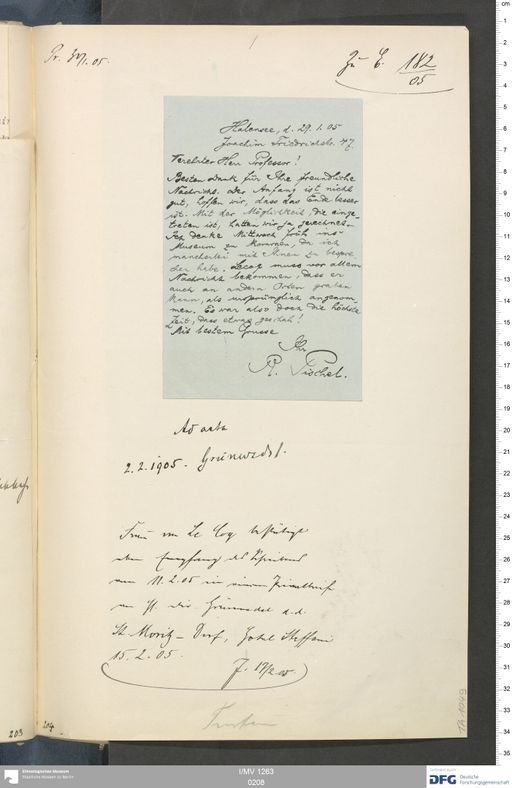 Pr. 30/1.05.
Zu E. 182/05
Halensee, d. 29.1.05
Joachim Friedrichstr. 47.
Verehrter Herr Professor!
Besten Dank für Ihre freundliche
Nachricht. Der Anfang ist nicht
gut, hoffen wir, dass das Ende besser
ist. Mit der Möglichkeit, die einge-
treten ist, hatten wir ja gerechnet.
Ich denke Mittwoch früh ins
Museum zu kommen, da ich
mancherlei mit Ihnen zu bespre
chen habe. Lecoq muss vor allem
Nachricht bekommen, dass er
auch an andern Orten graben
kann, als ursprünglich angenom
men. Es war also doch die höchste
Zeit, dass etwas geschah!
Mit bestem Grusse
Ihr
R. Pischel.
Ad acta
2.2.1905. Grünwedel.
Frau von Le Coq bestätigt
den Empfang des Schreibens
vom 11.2.05 in einem Privatbrief
an H. Dir. Grünwedel d.d.
St. Moritz-Dorf, Hotel Steffani
15.2.05.
203
204
TA 1049
I/MV 1263
0208
Ethnologisches Museum
Staatliche Museen zu Berlin
DFG Deutsche
Forschungsgemeinschaft